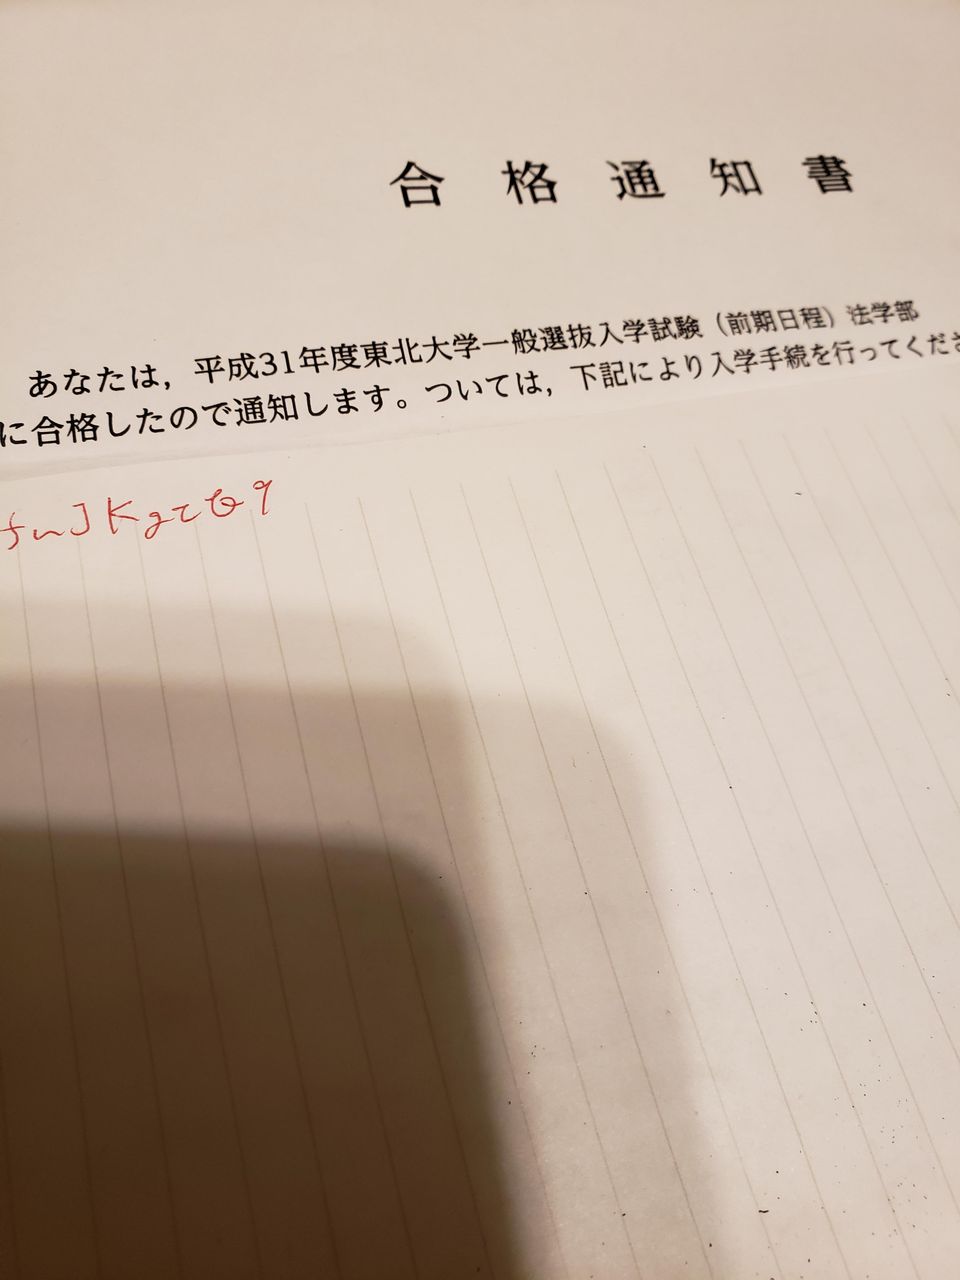 合格通知書
あなたは，平成31年度東北大学一般選抜入学試験（前期日程）法学部
に合格したので通知します。ついては，下記により入学手続を行ってくださ